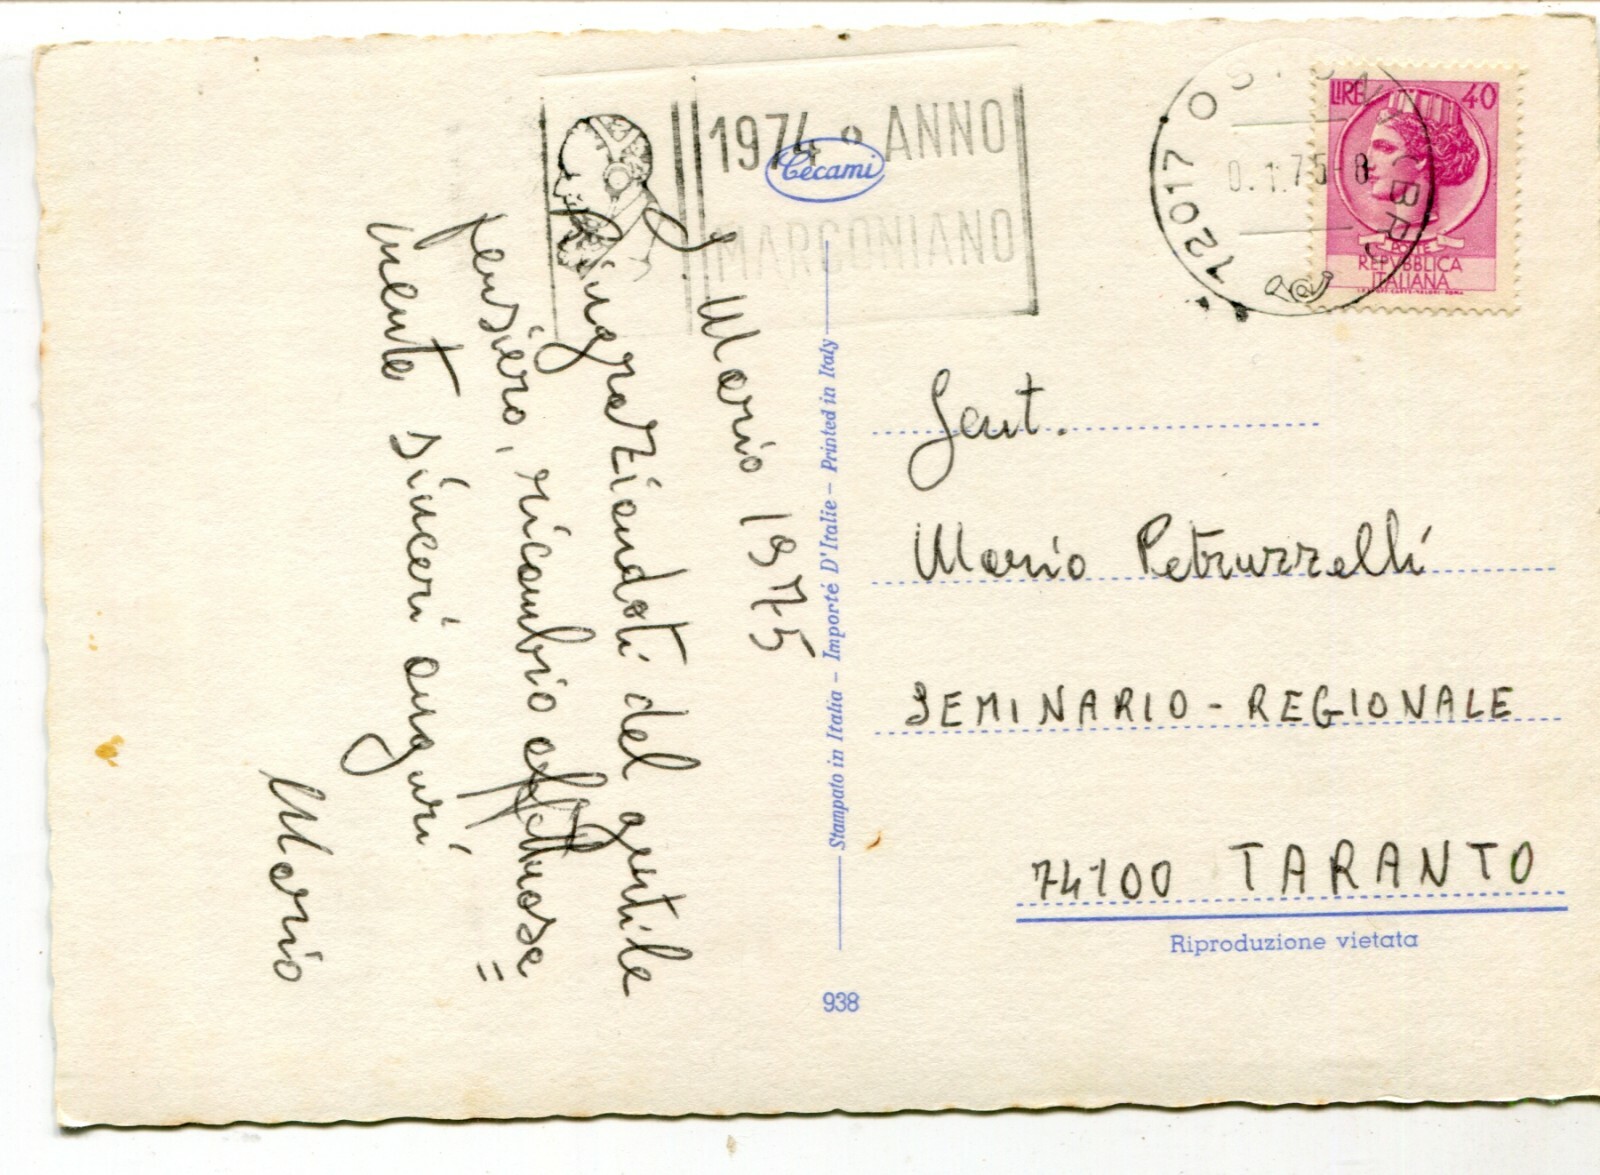 1974 • ANNO
MARCONIANO
Cecami
72017 OSTUNI (BR)
0.1.75-8
LIRE 40
POSTE
REPVBBLICA
ITALIANA
Mario 1975
Ringraziandoti del gentile
pensiero, ricambio affettuosa=
mente sinceri auguri
Mario
Stampato in Italia – Importé D'Italie – Printed in Italy
Gent.
Mario Petruzzelli
SEMINARIO - REGIONALE
74100 TARANTO
Riproduzione vietata
938